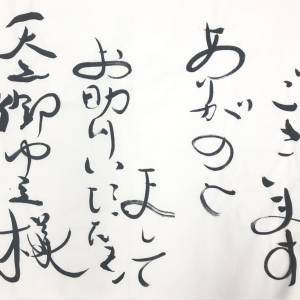 天之御中主様
お助けいただき
まして
ありがとう
ございます